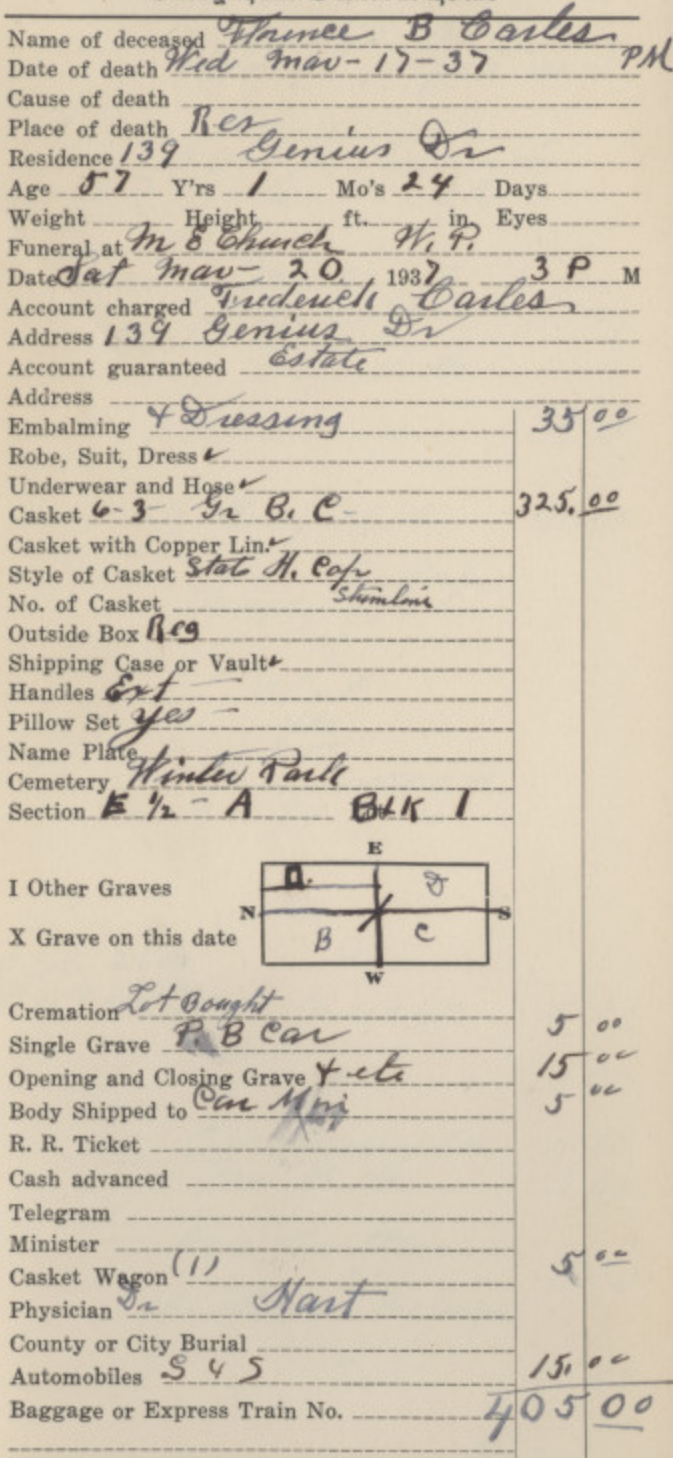 Name of deceased Florence B Carles
Date of death Wed Mar-17-37 PM
Cause of death
Place of death Res
Residence 139 Genius Dr
Age 57 Y'rs 1 Mo's 24 Days
Weight Height ft. in. Eyes
Funeral at M E Church W. P.
Date Sat Mar- 20 1937 3 P M
Account charged Frederick Carles
Address 139 Genius Dr
Account guaranteed Estate
Address
Embalming & Dressing 35 00
Robe, Suit, Dress
Underwear and Hose
Casket 6-3 Gr B. C- 325. 00
Casket with Copper Lin.
Style of Casket State H. Cap
No. of Casket
Outside Box Reg
Shipping Case or Vault
Handles Ext
Pillow Set yes
Name Plate
Cemetery Winter Park
Section E 1/2 - A BLK 1
E
I Other Graves
D
N S
X Grave on this date
B C
W
Cremation Lot Bought
Single Grave P. B Car 5 00
Opening and Closing Grave & etc 15 00
Body Shipped to Car 5 00
R. R. Ticket
Cash advanced
Telegram
Minister
Casket Wagon (1) 5 00
Physician Dr Hart
County or City Burial
Automobiles S & S 15. 00
Baggage or Express Train No. 405 00